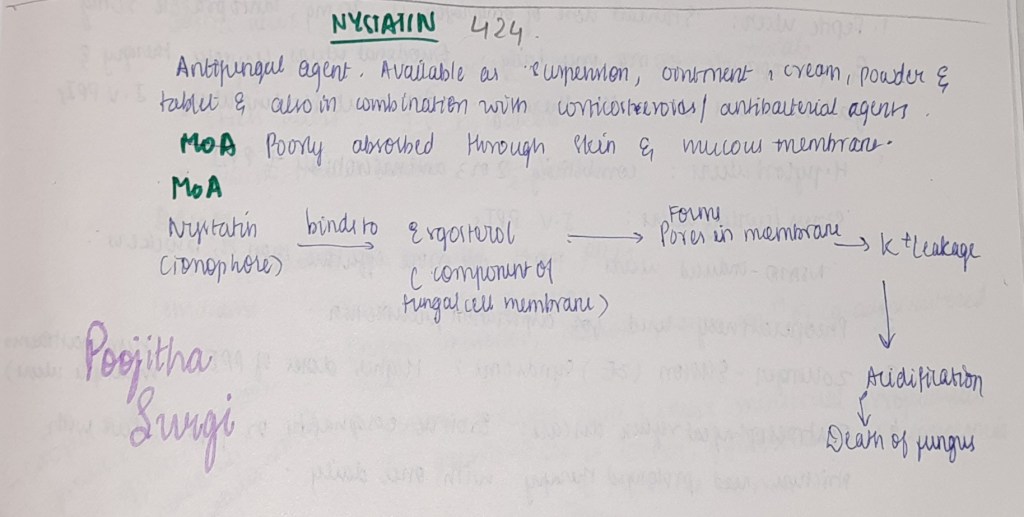 NYSTATIN 424.
Antifungal agent. Available as suspension, ointment, cream, powder &
tablet & also in combination with corticosteroids/ antibacterial agents.
MOA Poorly absorbed through skin & mucous membrane.
MOA
Nystatin binds to Ergosterol → Forms Pores in membrane → K+ leakage
(ionophore) (component of
fungal cell membrane)
Acidification
Death of fungus
Poojitha
Surgi